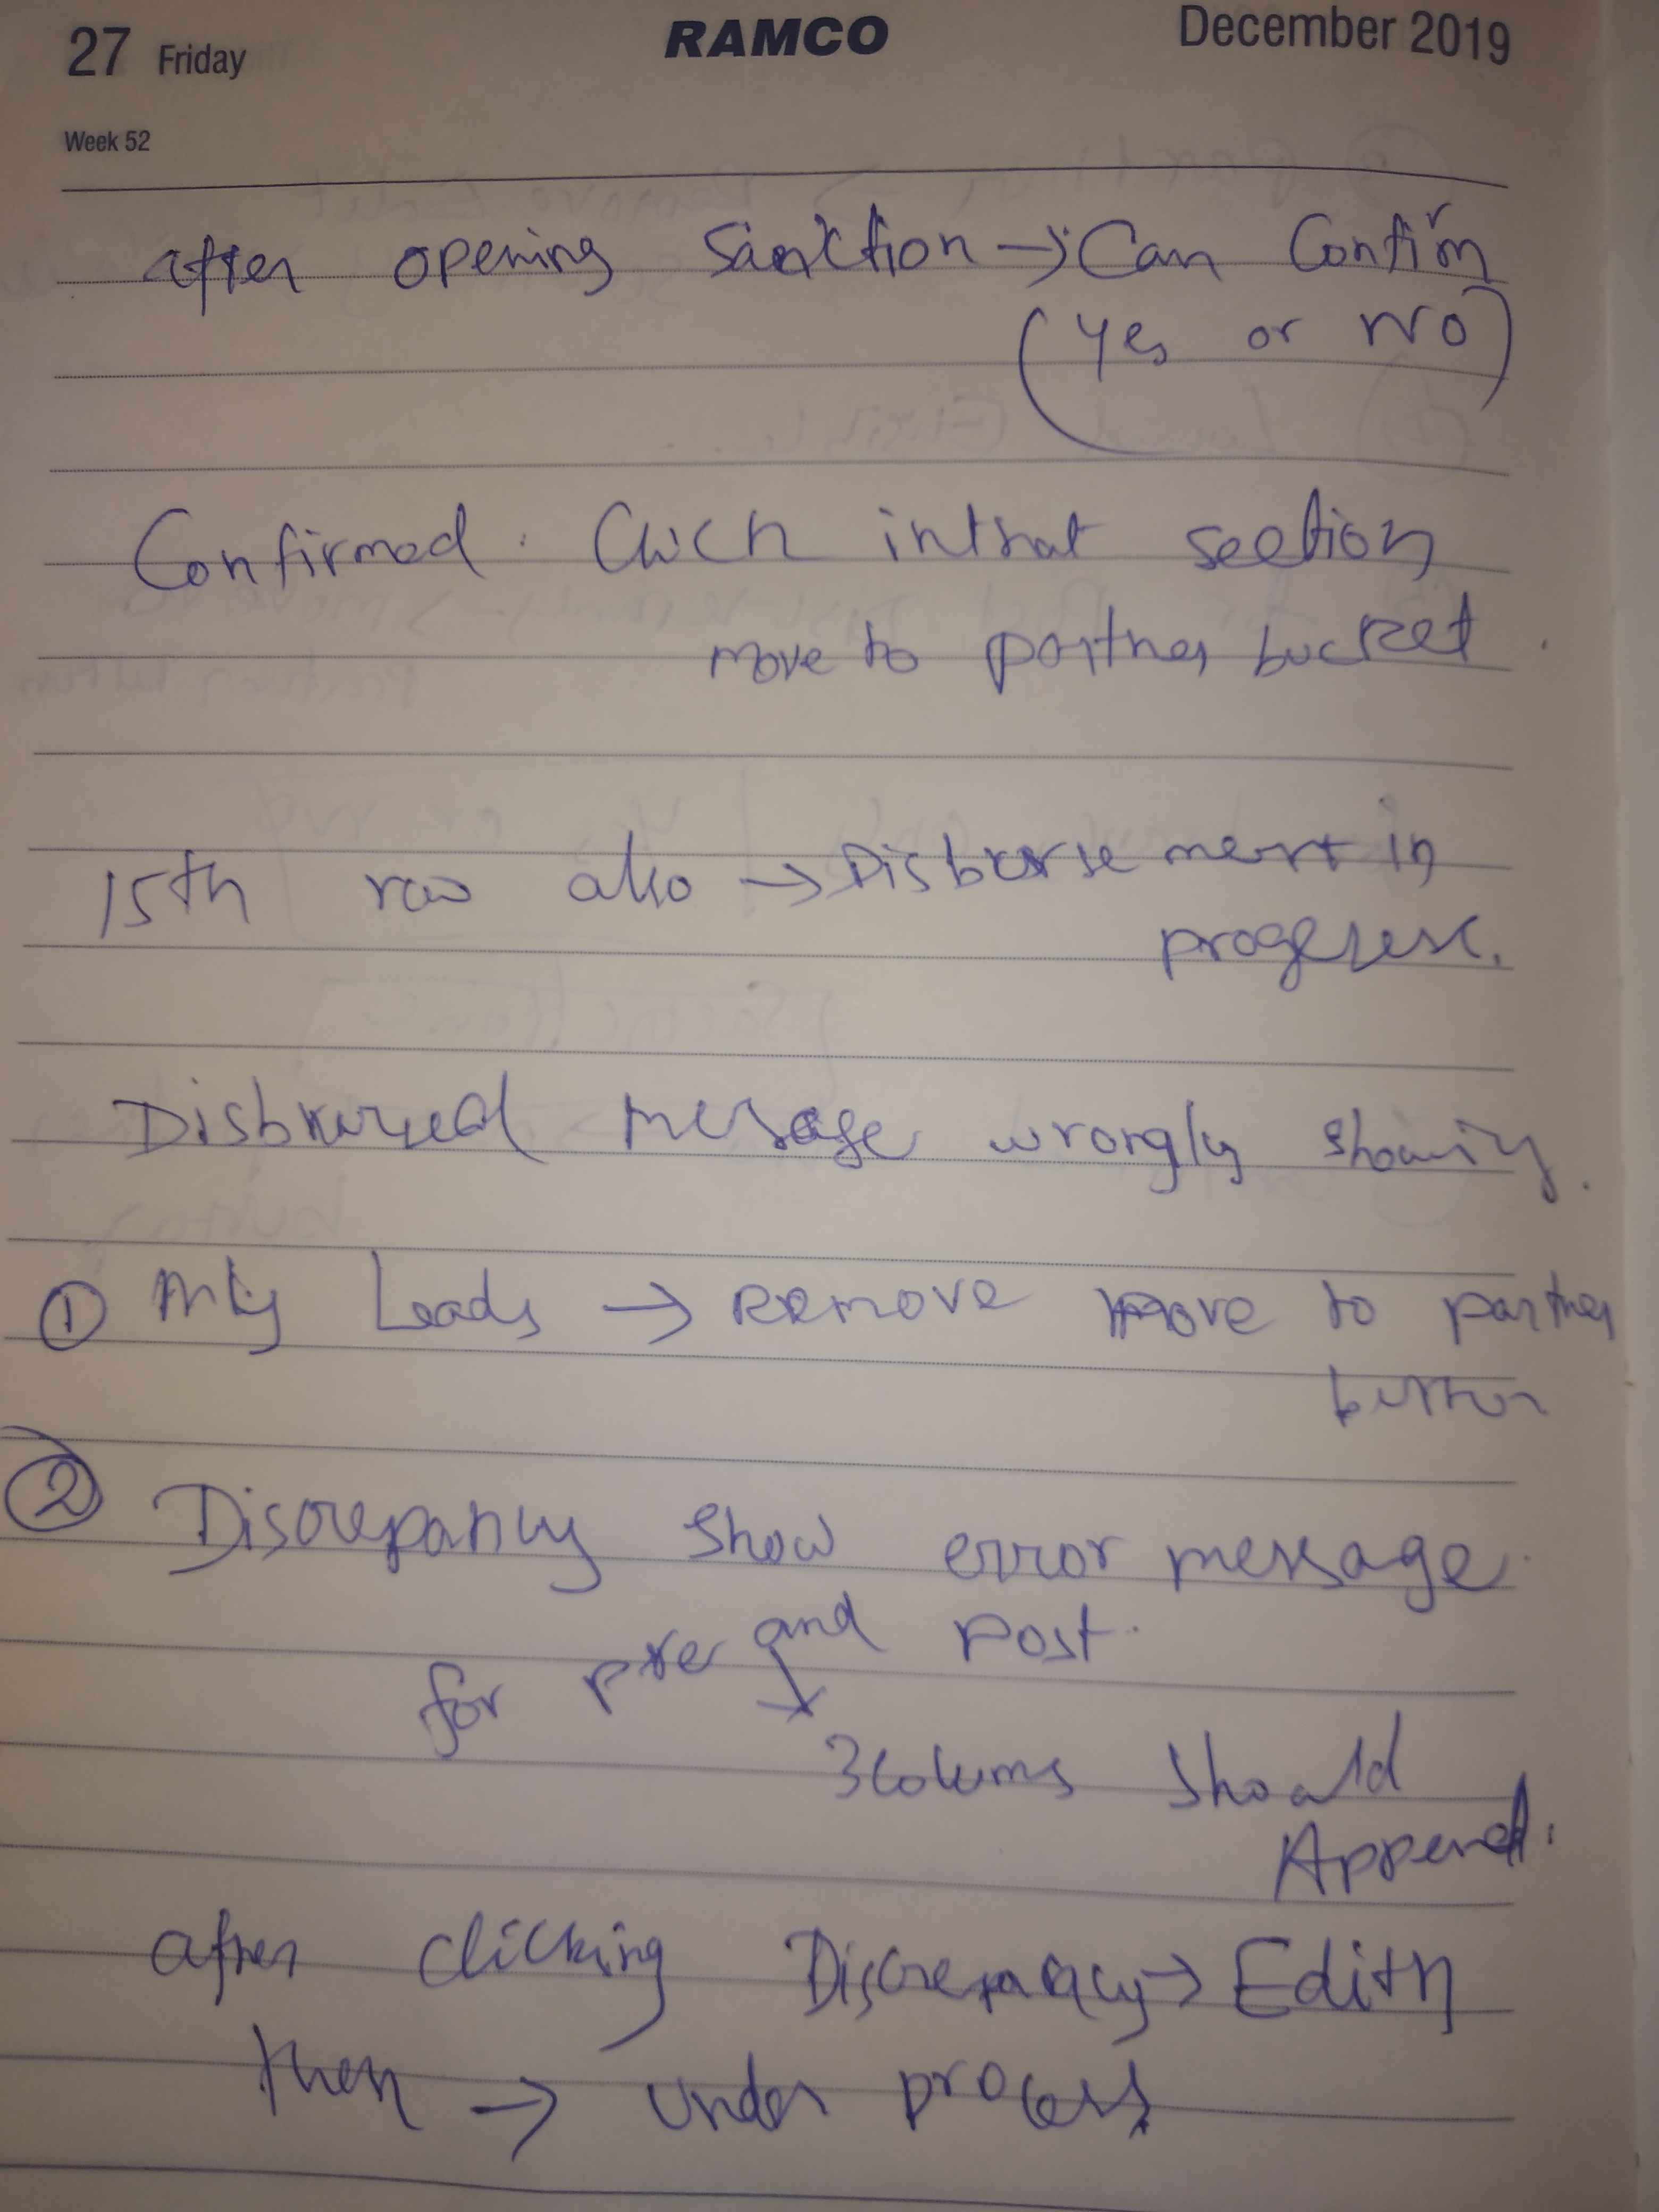 27 Friday RAMCO December 2019
Week 52
after opening Sanction → Can Confirm
(Yes or No)
Confirmed. Click in that section
move to partner bucket.
15th row also → Disburse ment in
progress.
Disbursed message wrongly showing.
① My Leads → Remove move to partner
button
② Discrepancy show error message.
for pre and post.
3 Colums should
Append.
after clicking Discrepancy →
then → under process